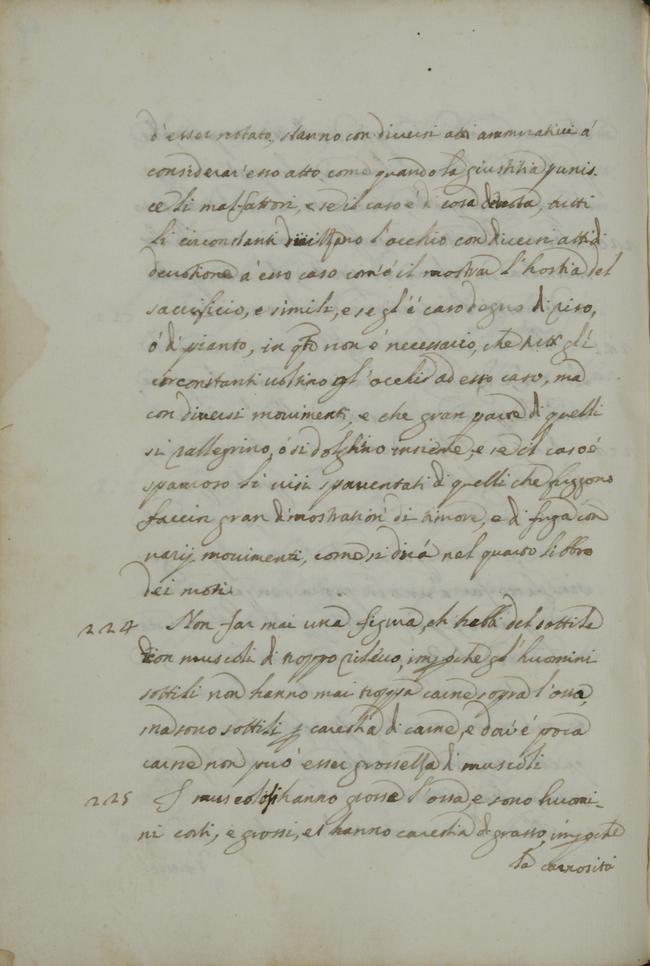 d'esser notato, stanno con diversi atti ammirativi á
considerar'esso atto come quando la giustitia punis
ce li mal-fattori, e se il caso é di cosa devota, tutti
li circonstanti l'occhio con diversi atti di
devotione á esso caso com'é il mostrar l'hostia del
sacrificio, e simili, e se gl'é caso degno di riso,
ó di pianto, in qto non é necessario, che tutti gli
circonstanti voltino gl'occhi ad esso caso, ma
con diversi movimenti, e che gran parte di quelli
si rallegrino, ó si dolghino insieme, e se il caso é
spauroso li visi spaventati di quelli che fuggono
faccin gran dimostration' di timore, e di fuga con
varij movimenti, come si dirá nel quarto libbro
dei moti.
224 Non far mai una figura, ch'habbi del sottile
con muscoli di troppo rilievo, impoche gl'huomini
sottili non hanno mai troppa carne sopra l'ossa,
ma sono sottili p carestia di carne, e dov'é poca
carne non puó esser grossezza di muscoli
225 I muscolosi hanno grosse l'ossa e sono huomi-
ni corti, e grossi, et hanno carestia di grasso, impoche
la carnositá